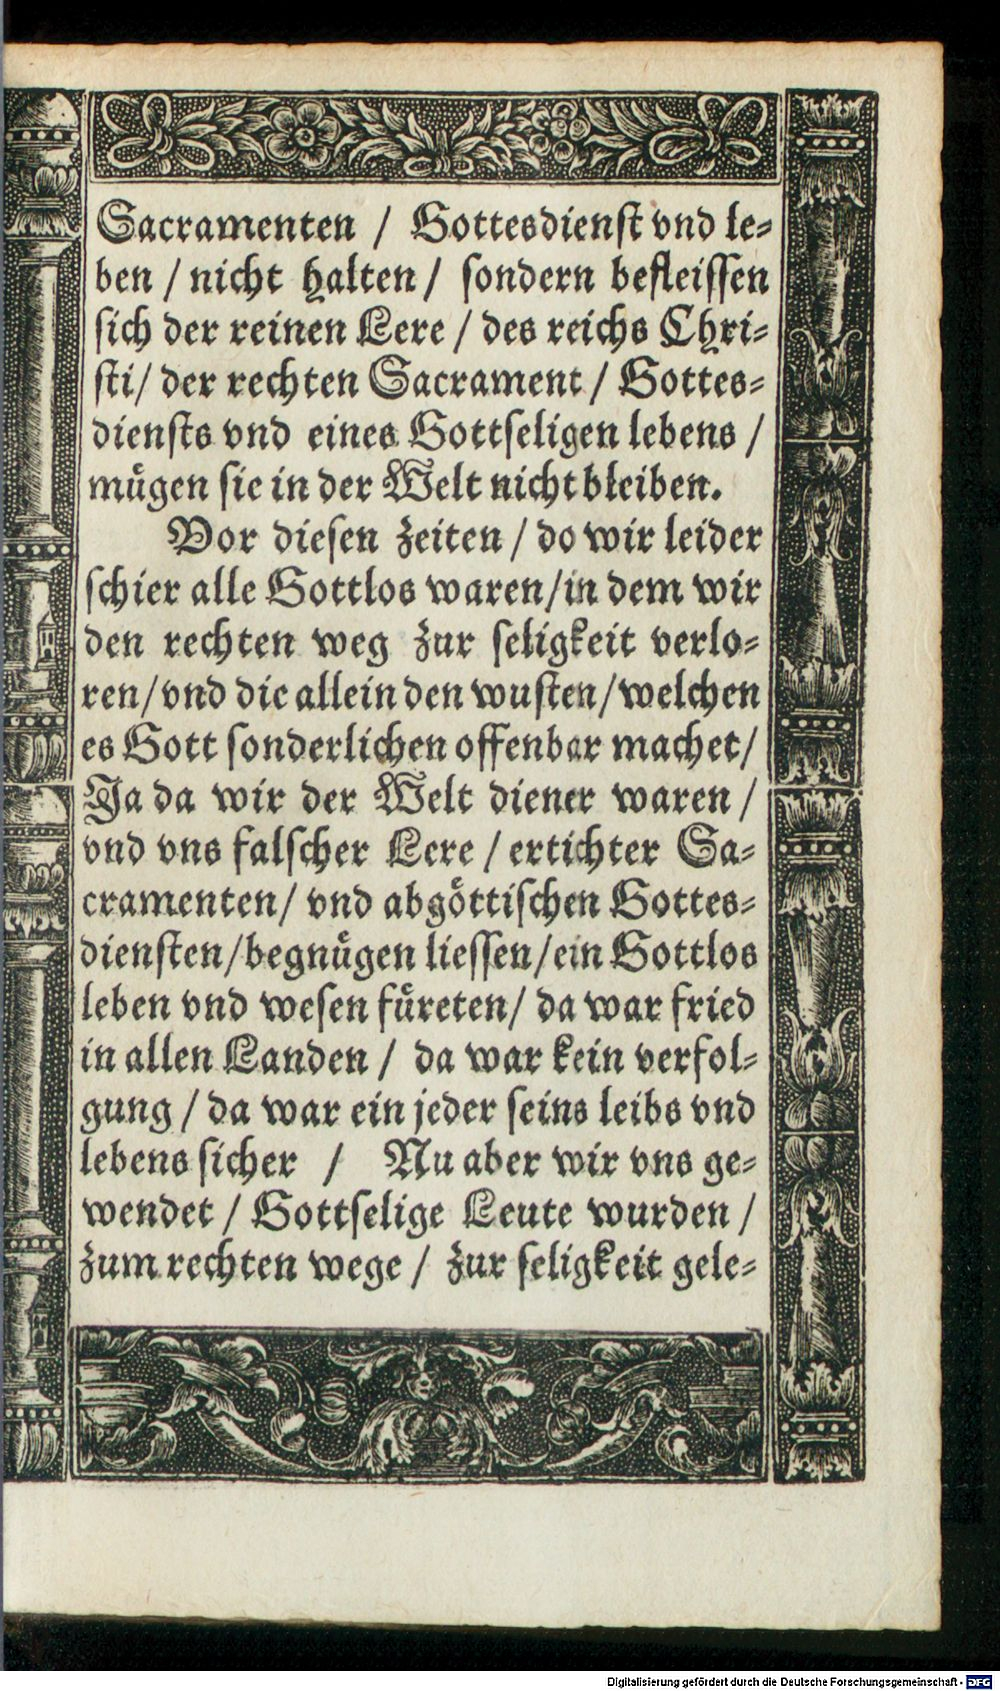 Sacramenten / Gottesdienst vnd le=
ben / nicht halten / sondern befleissen
sich der reinen Lere / des reichs Chri=
sti / der rechten Sacrament / Gottes=
diensts vnd eines Gottseligen lebens /
muͤgen sie in der Welt nicht bleiben.
Vor diesen zeiten / do wir leider
schier alle Gottlos waren / in dem wir
den rechten weg zur seligkeit verlo=
ren / vnd die allein den wusten / welchen
es Gott sonderlichen offenbar machet /
Ja da wir der Welt diener waren /
vnd vns falscher Lere / ertichter Sa=
cramenten / vnd abgoͤttischen Gottes=
diensten / begnuͤgen liessen / ein Gottlos
leben vnd wesen fuͤreten / da war fried
in allen Landen / da war kein verfol=
gung / da war ein jeder seins leibs vnd
lebens sicher / Nu aber wir vns ge=
wendet / Gottselige Leute wurden /
zum rechten wege / zur seligkeit gele=
Digitalisierung gefördert durch die Deutsche Forschungsgemeinschaft - DFG